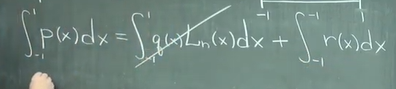 -1 1
∫_{-1}^{1} p(x)dx = ∫_{-1}^{1} q(x)L_n(x)dx + ∫_{-1}^{-1} r(x)dx